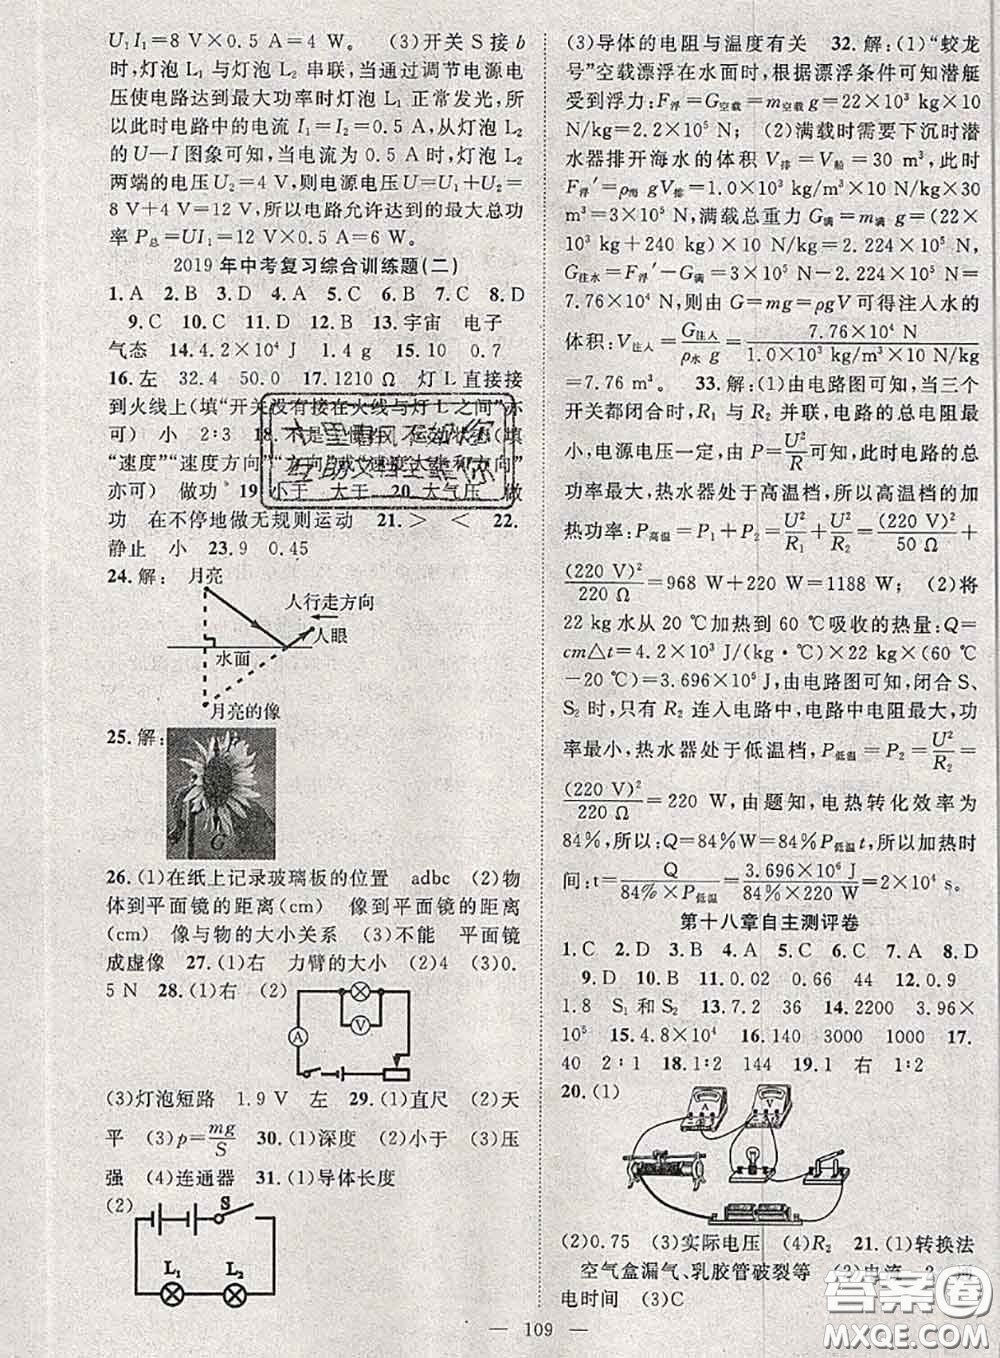 U₁I₁=8 V×0.5 A=4 W。 (3)开关 S 接 b
时,灯泡 L₁ 与灯泡 L₂ 串联,当通过调节电源电
压使电路达到最大功率时灯泡 L₁ 正常发光,所
以此时电路中的电流 I₁=I₂=0.5 A,从灯泡 L₂
的 U—I 图象可知,当电流为 0.5 A 时,灯泡 L₂
两端的电压 U₂=4 V,则电源电压 U=U₁+U₂=
8 V+4 V=12 V,所以电路允许达到的最大总功
率 P总=UI₁=12 V×0.5 A=6 W。
2019 年中考复习综合训练题(二)
1. A 2. B 3. D 4. A 5. C 6. B 7. C 8. D
9. C 10. C 11. D 12. B 13. 宇宙 电子
气态 14. 4.2×10⁴ J 1.4 g 15. 10 0.7
16. 左 32.4 50.0 17. 1210 Ω 灯 L 直接接
到火线上(填“开关没有接在火线与灯 L 之间”亦
可) 小 2∶3 18. 不是
“速度”“速度方向”“方向”或“速度大小和方向”
亦可) 做功 19. 小于 大于 20. 大气压 做
功 在不停地做无规则运动 21. > < 22.
静止 小 23. 9 0.45
24. 解: 月亮
人行走方向
人眼
水面
月亮的像
25. 解:
G
26. (1)在纸上记录玻璃板的位置 adbc (2)物
体到平面镜的距离(cm) 像到平面镜的距离
(cm) 像与物的大小关系 (3)不能 平面镜
成虚像 27. (1)右 力臂的大小 (2)4 (3)0.
5 N 28. (1)右 (2)
A
V
(3)灯泡短路 1.9 V 左 29. (1)直尺 (2)天
平 (3)p=mg/S 30. (1)深度 (2)小于 (3)压
强 (4)连通器 31. (1)导体长度
(2)
S
L₁ L₂
(3)导体的电阻与温度有关 32. 解:(1)“蛟龙
号”空载漂浮在水面时,根据漂浮条件可知潜艇
受到浮力:F浮=G空载=m空载g=22×10³ kg×10
N/kg=2.2×10⁵ N; (2)满载时需要下沉时潜
水器排开海水的体积 V排=V船=30 m³,此时
F浮′=ρ海 gV排=1.0×10³ kg/m³×10 N/kg×30
m³=3×10⁵ N,满载总重力 G满=m满 g=(22×10³
kg+240 kg)×10 N/kg=2.224×10⁵ N,
G注水=F浮′-G满=3×10⁵ N-2.224×10⁵ N=
7.76×10⁴ N,则由 G=mg=ρgV 可得注入水的
体积:V注入=G注入/ρ水 g=7.76×10⁴ N/1.0×10³ kg/m³×10 N/kg
=7.76 m³。 33. 解:(1)由电路图可知,当三个
开关都闭合时,R₁ 与 R₂ 并联,电路的总电阻最
小,电源电压一定,由 P=U²/R 可知,此时电路的总
功率最大,热水器处于高温档,所以高温档的
加热功率:P高温=P₁+P₂=U²/R₁+U²/R₂=(220 V)²/50 Ω+
(220 V)²/220 Ω=968 W+220 W=1188 W; (2)将
22 kg水从 20 ℃加热到 60 ℃吸收的热量:Q=
cm△t=4.2×10³ J/(kg·℃)×22 kg×(60 ℃
-20 ℃)=3.696×10⁶ J,由电路图可知,闭合 S、
S₂ 时,只有 R₂ 连入电路中,电路中电阻最大,功
率最小,热水器处于低温档,P低温=P₂=U²/R₂=
(220 V)²/220 Ω=220 W,由题知,电热转化效率为
84%,所以:Q=84%W=84%P低温t,所以加热时
间:t=Q/84%×P低温=3.696×10⁶ J/84%×220 W=2×10⁴ s。
第十八章自主测评卷
1. C 2. D 3. B 4. A 5. C 6. D 7. A 8. D
9. D 10. B 11. 0.02 0.66 44 12. 0.9
1.8 S₁ 和 S₂ 13. 7.2 36 14. 2200 3.96×
10⁵ 15. 4.8×10⁴ 16. 140 3000 1000 17.
40 2∶1 18. 1∶2 144 19. 1 右 1∶2
20. (1)
A V
(2)0.75 (3)实际电压 (4)R₂ 21. (1)转换法
空气盒漏气、乳胶管破裂等 (2)电流 2
电时间 (3)C
— 109 —
答案圈
MXQE.COM